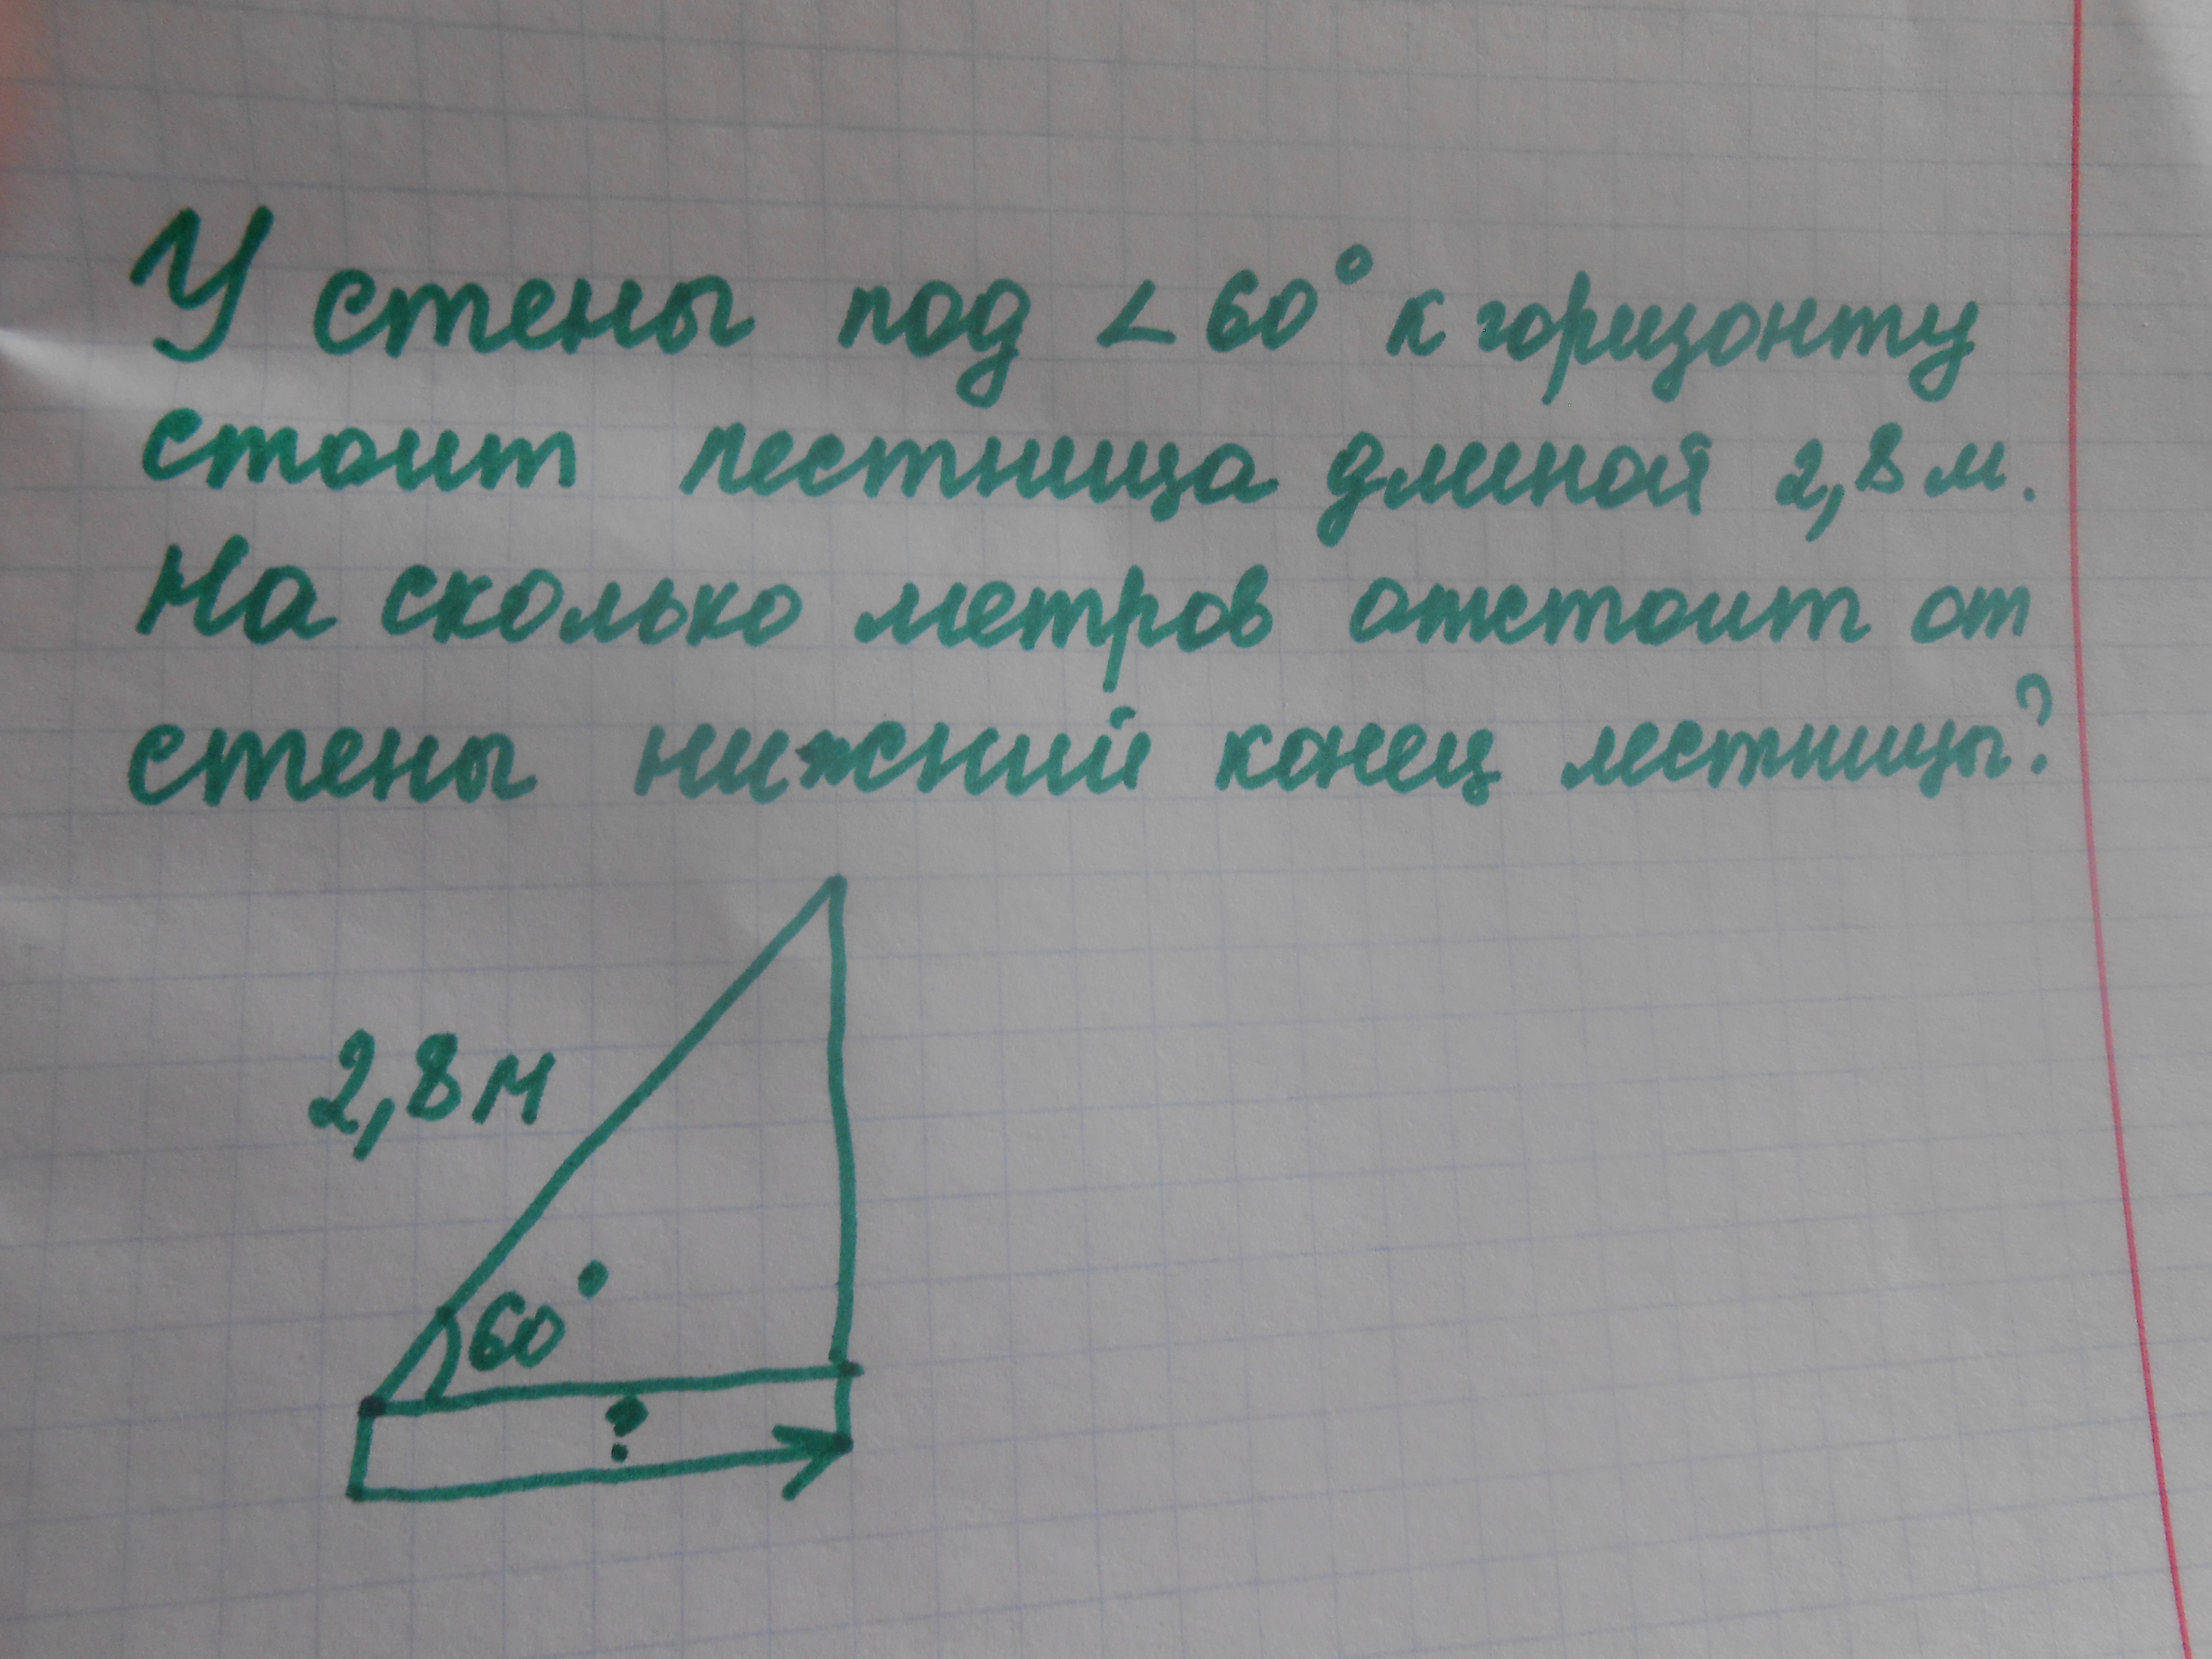 У стены под ∠60° к горизонту
стоит лестница длиной 2,8 м.
На сколько метров отстоит от
стены нижний конец лестницы?
2,8 м
60°
?